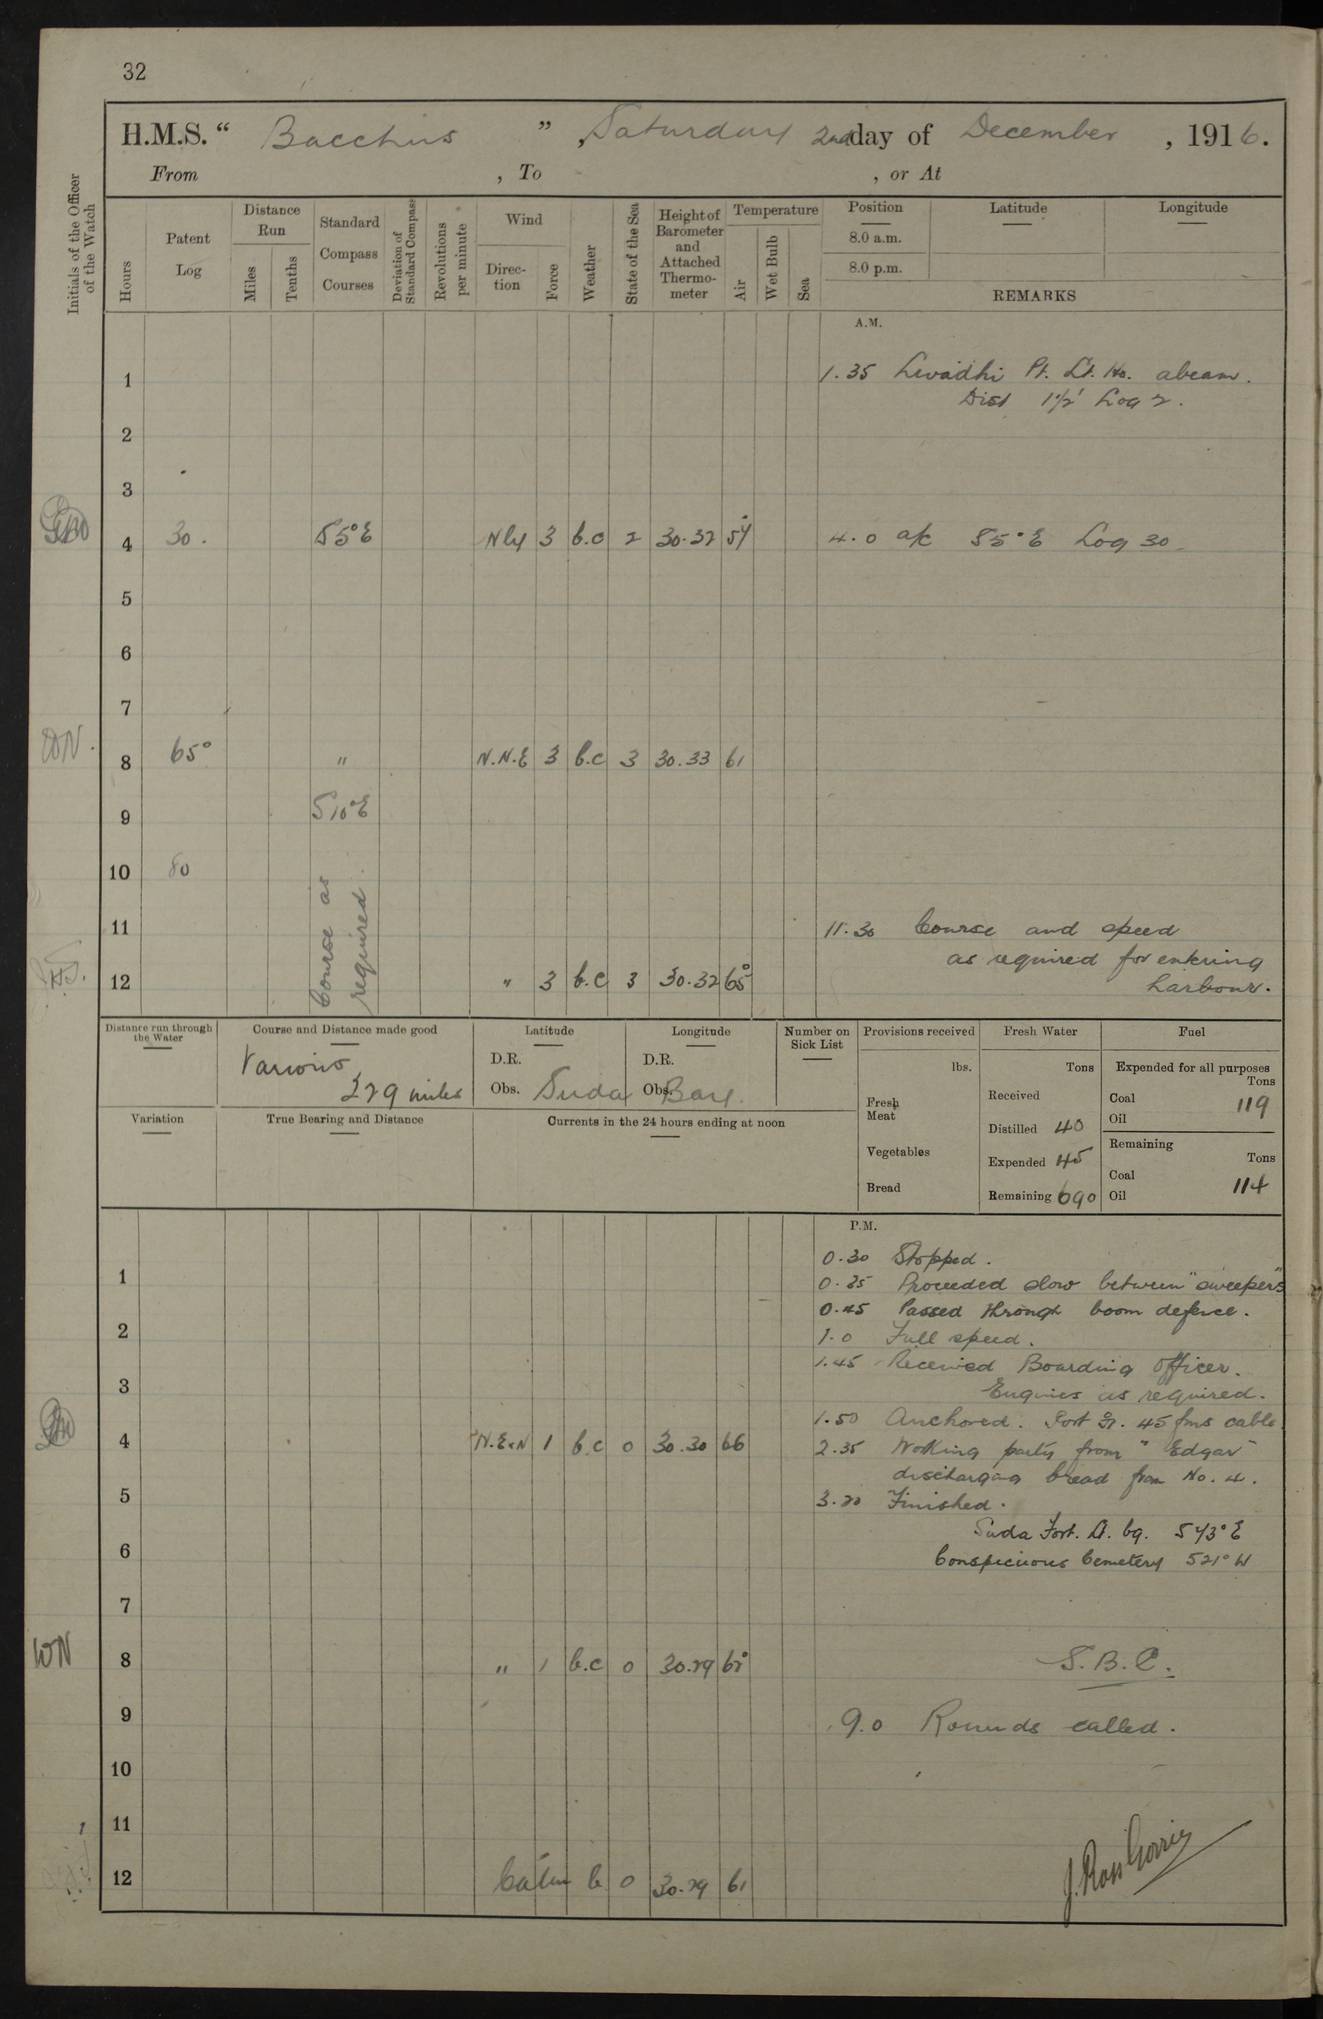 32
H.M.S. " Bacchus " , Saturday 2nd day of December , 1916.
From , To , or At
Initials of the Officer of the Watch
Hours
Patent Log
Distance Run
Miles
Tenths
Standard Compass Courses
Deviation of Standard Compass
Revolutions per minute
Wind
Direction
Force
Weather
State of the Sea
Height of Barometer and Attached Thermometer
Temperature
Air
Wet Bulb
Sea
Position
8.0 a.m.
8.0 p.m.
Latitude
Longitude
REMARKS
A.M.
1
1.35 Livadhi Pt. Lt. Ho. abeam.
Dist 1½' Log 2.
2
3
4 30. S5°E Nly 3 b.c 2 30.32 54 4.0 a/c S5°E Log 30
5
6
7
WN. 8 65° " N.N.E 3 b.c 3 30.33 61
9 S10°E
10 80
Course as required
11 11.30 Course and speed
as required for entering
harbour.
12 " 3 b.c 3 30.32 65°
Distance run through the Water
Course and Distance made good
Various
229 miles
Latitude
D.R.
Obs. Suda
Longitude
D.R.
Obs. Bay.
Number on Sick List
Provisions received
lbs.
Fresh Meat
Vegetables
Bread
Fresh Water
Tons
Received
Distilled 40
Expended 45
Remaining 690
Fuel
Expended for all purposes
Tons
Coal 119
Oil
Remaining
Tons
Coal
Oil 114
Variation
True Bearing and Distance
Currents in the 24 hours ending at noon
P.M.
0.30 Stopped.
1
0.35 Proceeded slow between "sweepers"
0.45 Passed through boom defence.
2
1.0 Full speed.
1.45 Received Boarding Officer.
3
Engines as required.
1.50 Anchored. Port Br. 45 fms cable
4 N.E×N 1 b.c 0 30.30 66
2.35 Working party from "Edgar"
discharging bread from No. 4.
5
3.20 Finished.
Suda Fort. Lt. bg. S43°E
6
Conspicuous Cemetery S21°W
7
WN 8 " 1 b.c 0 30.29 62° S.B.C.
9 9.0 Rounds called.
10
11
12 Calm b 0 30.29 61
J. Ross Gorrie